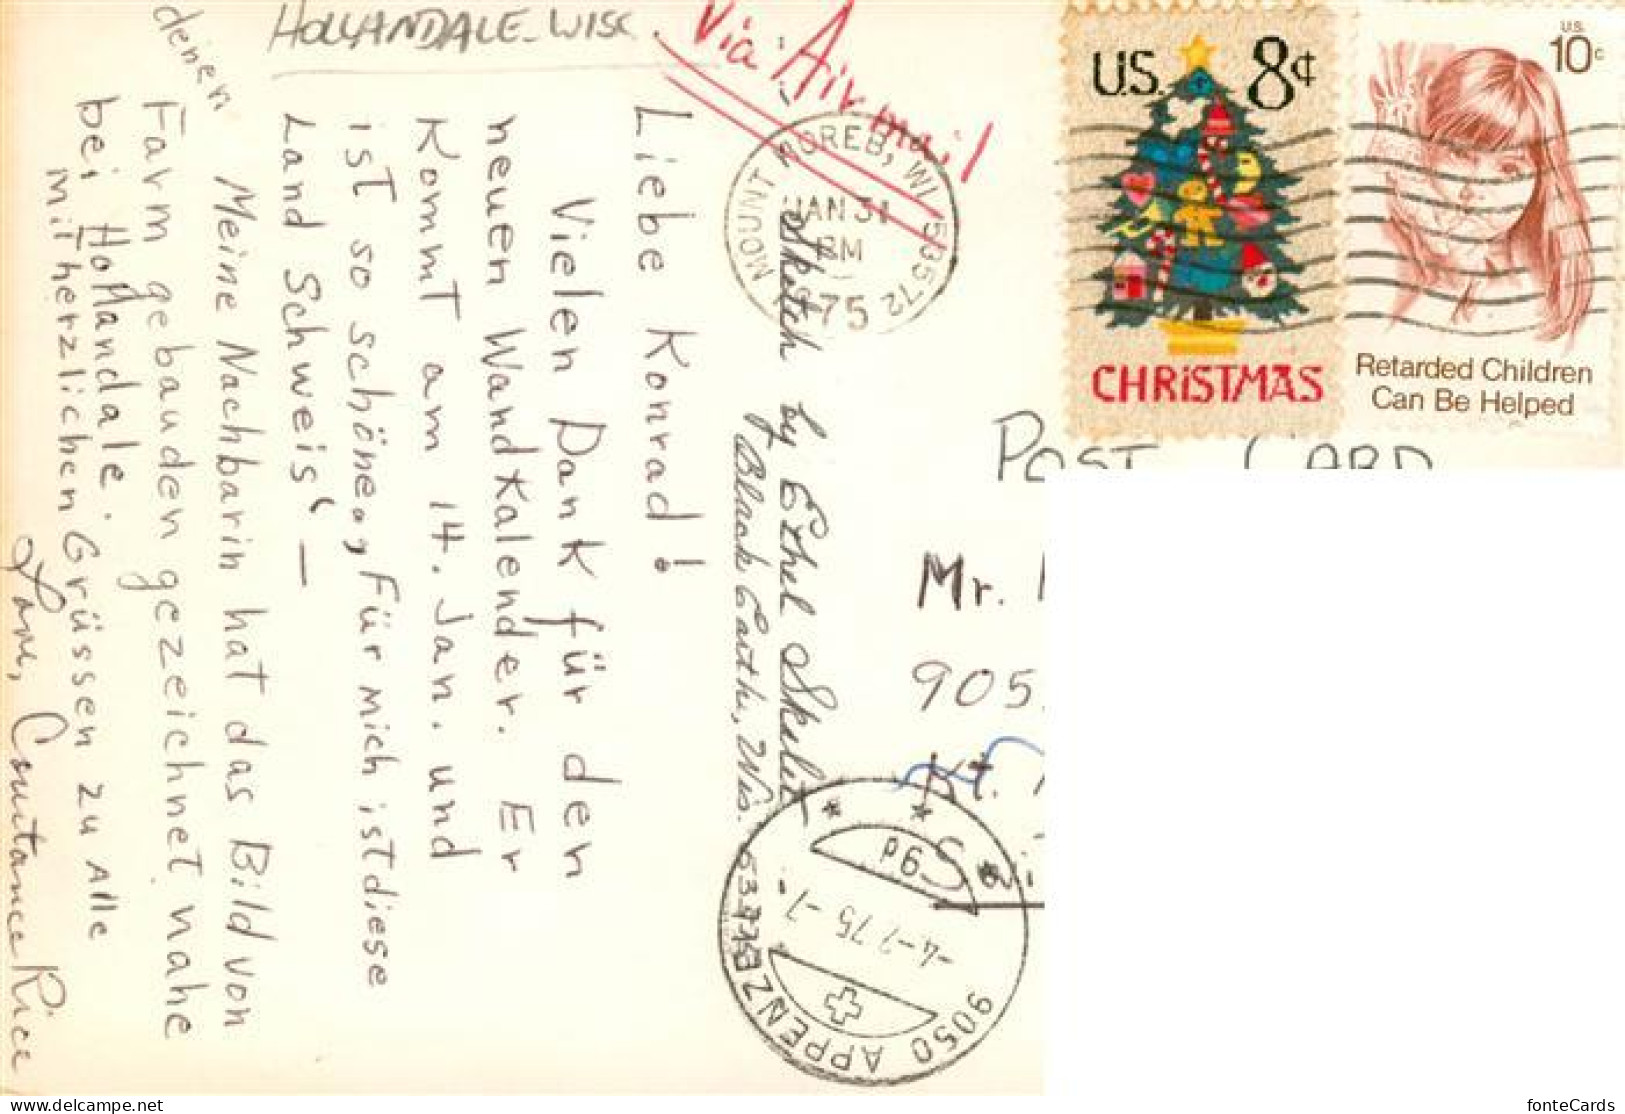 HOLLANDALE-WISC.
Via Air mail
Liebe Konrad!
Vielen Dank für den
neuen Wandkalender. Er
Kommt am 14. Jan. und
ist so schöne, Für mich ist diese
Land Schweis" —
Meine Nachbarin hat das Bild von
deinen
Farm gebauden gezeichnet nahe
bei Hollandale.
mit herzlichen Grüssen zu Alle
Love, Constance Rice
Sketch by Ethel Skelit
Black Earth, Wis.
MOUNT HOREB, WI 53572
JAN 31
PM
1975
U.S. 8¢
CHRISTMAS
U.S.
10c
Retarded Children
Can Be Helped
POST CARD
Mr.
905
St.
9050 APPENZELL
-4-2.75-7
delcampe.net
fonteCards